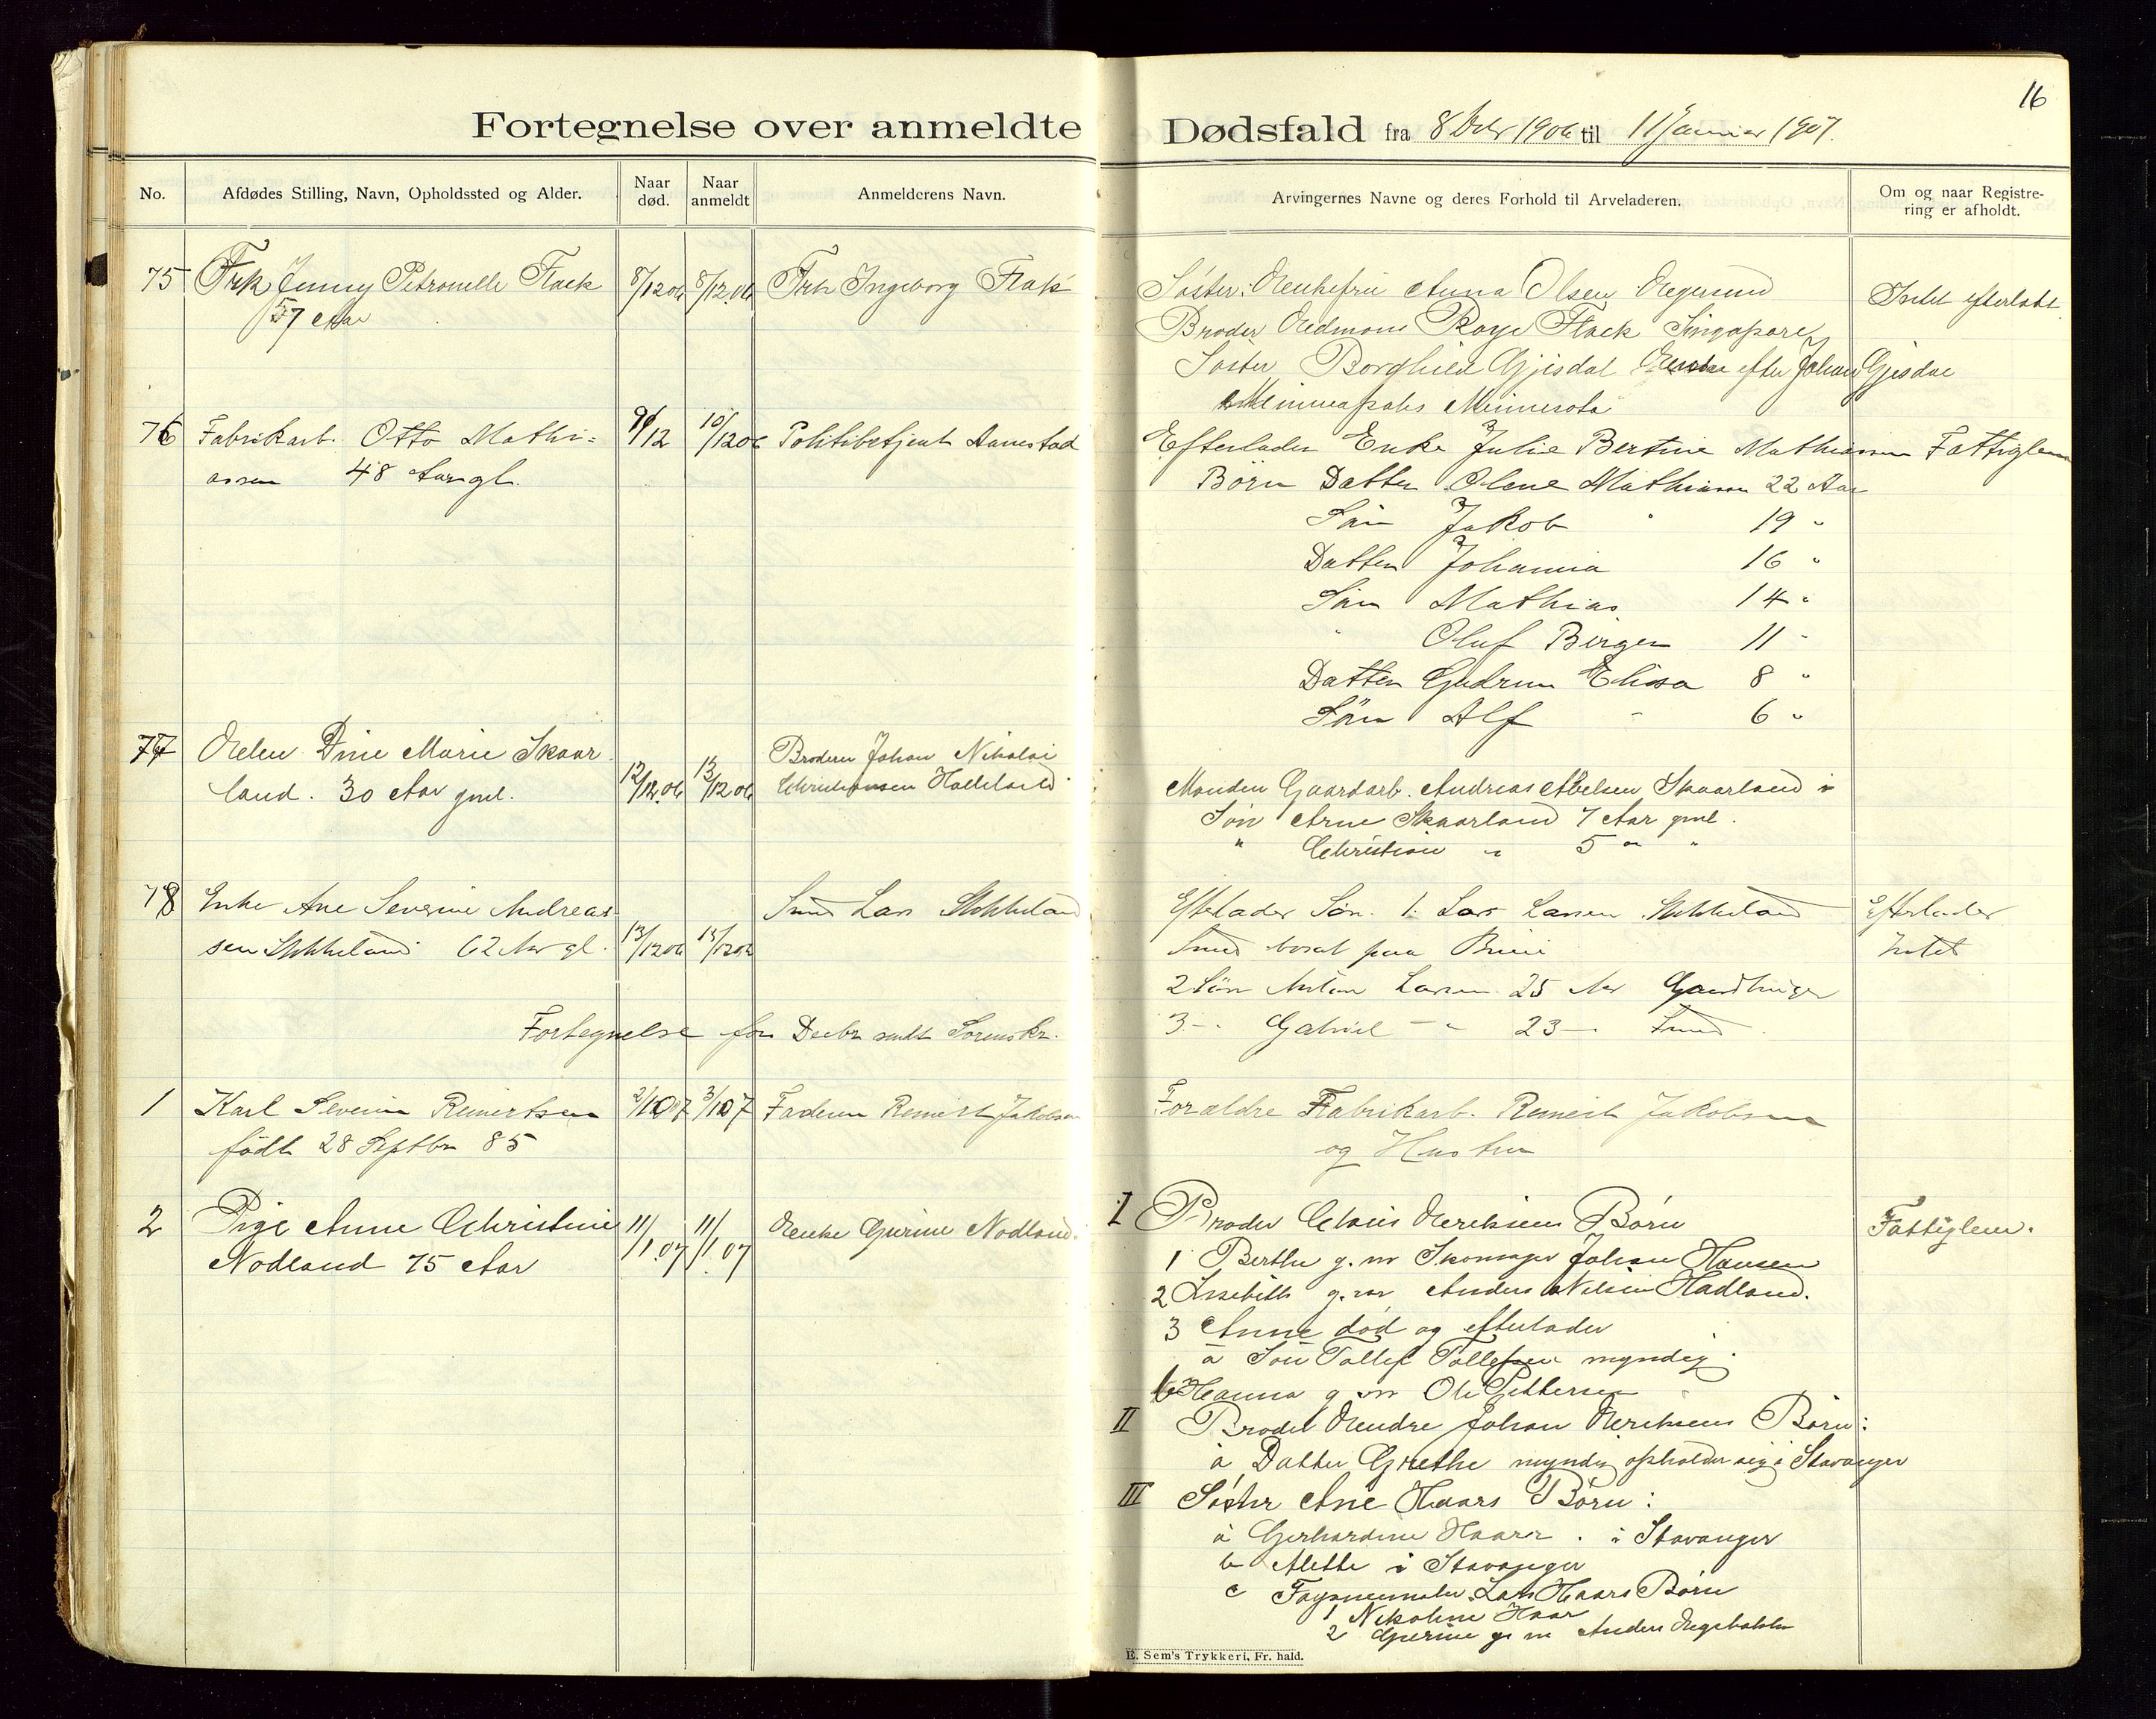 16
Fortegnelse over anmeldte Dødsfald fra 8 Decbr 1906 til 11 Januar 1907.
No. Afdødes Stilling, Navn, Opholdssted og Alder. Naar død. Naar anmeldt Anmelderens Navn.
Arvingernes Navne og deres Forhold til Arveladeren. Om og naar Registrering er afholdt.
75 Frk Jenny Petronelle Flack 8/12 06 8/12.06 Frk Ingeborg Flak
57 Aar
Søster: Enkefru Anna Olsen Egersund Intet efterladt
Broder Edmons Roye Flack Singapore
Søster Borghild Gjisdal Enke efter Johan Gjesdal
Minneapolis Minnesota
76 Fabrikarb. Otto Mathi= 9/12 10/12 06 Politibetjent Aanestad
assen 48 Aar gl.
Efterlader Enke Julie Bertine Mathiassen Fattiglem
Børn Datter Olene Mathiassen 22 Aar
Søn Jakob " 19 "
Datter Johanna 16 "
Søn Mathias 14 "
" Oluf Birger 11 "
Datter Gudrun Elisa 8 "
Søn Alf 6 "
77 Dine Marie Skaar
land. 30 Aar gml. 12/12.06 13/12 06
Broderen Johan Nikolai
Christiansen Hatleland
Manden Gaardarb. Andreas Abelsen Skaarland
Søn Arne Skaarland 7 Aar gml.
" Christian " 5 " "
78 Enke Ane Severine Andreas
sen Stokkeland 62 Aar gl. 13/12 06 15/12 06
Smed Lars Stokkeland
Efterlader Søn. 1. Lars Larsen Stokkeland Efterlader
Smed bosat paa Brune Intet
2 Søn Anton Larsen 25 Aar
3 - Gabriel - " 23 - Smed
Fortegnelse for Decbr sendt Sorenskr.
1 Karl Severin Reinertsen 2/1 07 3/1 07 Faderen Reinert Jakobsen
født 28 Septbr 85
Forældre Fabrikarb. Reinert Jakobsen
og Hustru
2 Pige Anne Christine 11/1.07 11/1.07 Enke Gurine Nodland.
Nodland 75 Aar
I Broder Claus Eriksens Børn Fattiglem.
1 Berthe g. m Skomager Johan Hansen
2 Lisebeth g. m Anders Nilsen Hadland.
3 Anne død og efterlader
a Søn Tollef Tollefsen myndig.
b Hanna g m Ole Pettersen
II Broder Endre Johan Eriksens Børn:
a Datter Grethe myndig opholder sig i Stavanger
III Søster Ane Haars Børn:
a Gerhardine Haarr. i Stavanger
b Mette i Stavanger
c Lars Haars Børn
1 Nikoline Haar
2 Gurine g. m Anders
E. Sem's Trykkeri, Fr. hald.